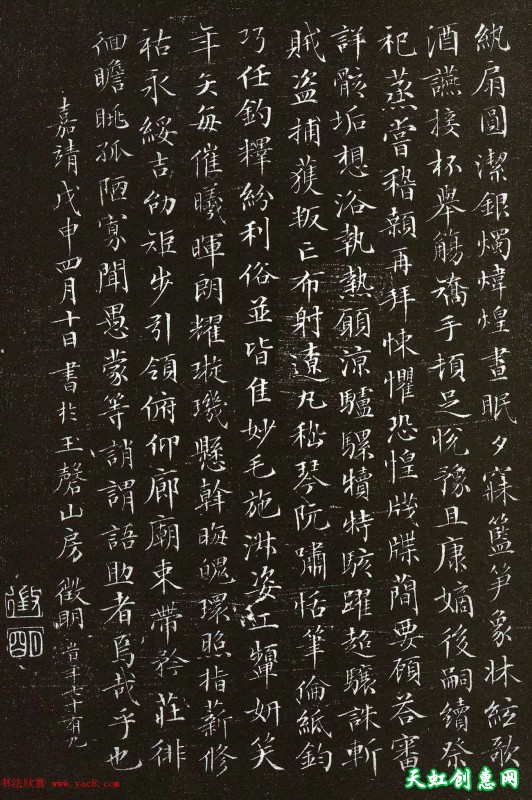 紈扇圓潔銀燭煒煌晝眠夕寐籃笋象牀絃歌
酒讌接杯舉觴矯手頓足悅豫且康嫡後嗣續祭
祀蒸嘗稽顙再拜悚懼恐惶牋牒簡要顧荅審
詳骸垢想浴執熱願涼驢騾犢特駭躍超驤誅斬
賊盜捕獲叛亡布射遼丸嵇琴阮嘯恬筆倫紙鈞
巧任釣釋紛利俗並皆佳妙毛施淑姿工顰妍笑
年矢每催曦暉朗耀璇璣懸斡晦魄環照指薪修
祜永綏吉劭矩步引領俯仰廊廟束帶矜莊徘
徊瞻眺孤陋寡聞愚蒙等誚謂語助者焉哉乎也
嘉靖戊申四月十日書於玉磬山房徵明
時年七十有九
徵明
书法欣赏 www.yac8.com
天虹创惠网